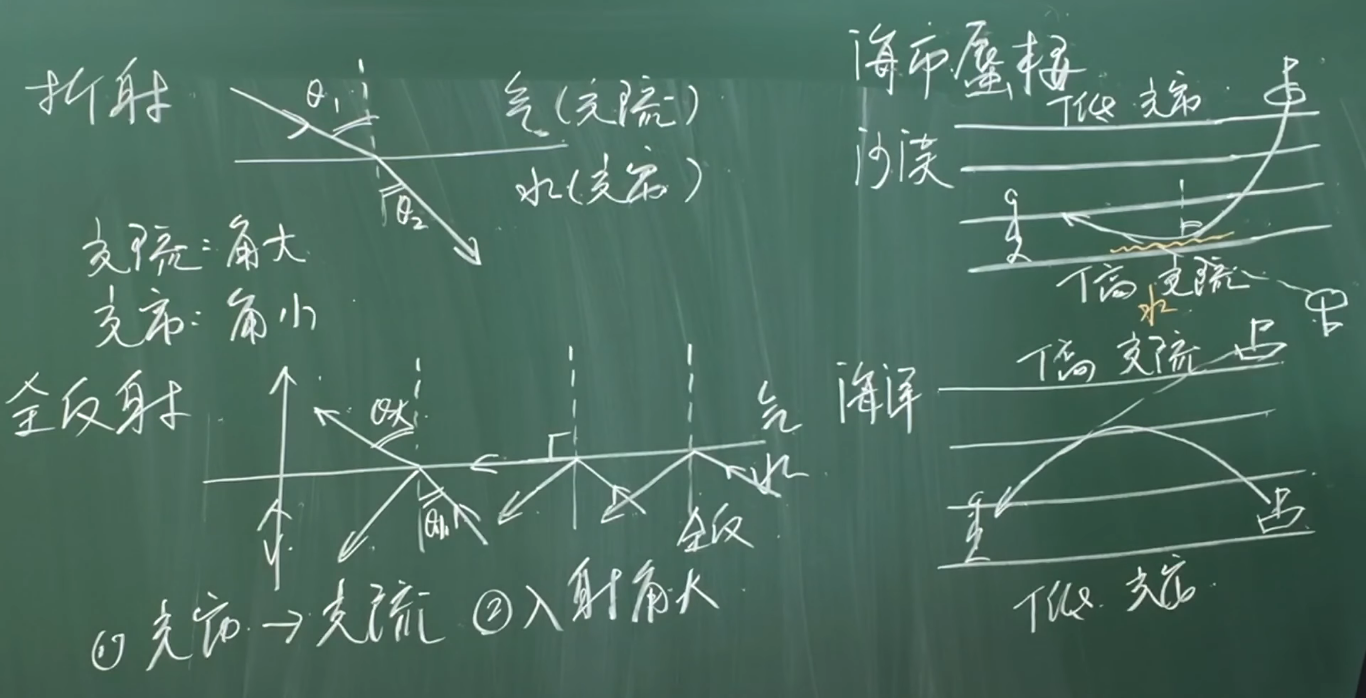 折射
θ₁
气(光疏)
水(光密)
θ₂
光疏:角大
光密:角小
全反射
θ大
θ小
气
水
全反
①光密→光疏 ②入射角大
海市蜃楼
沙漠
T低 光密
T高 光疏
水
海洋
T高 光疏
T低 光密